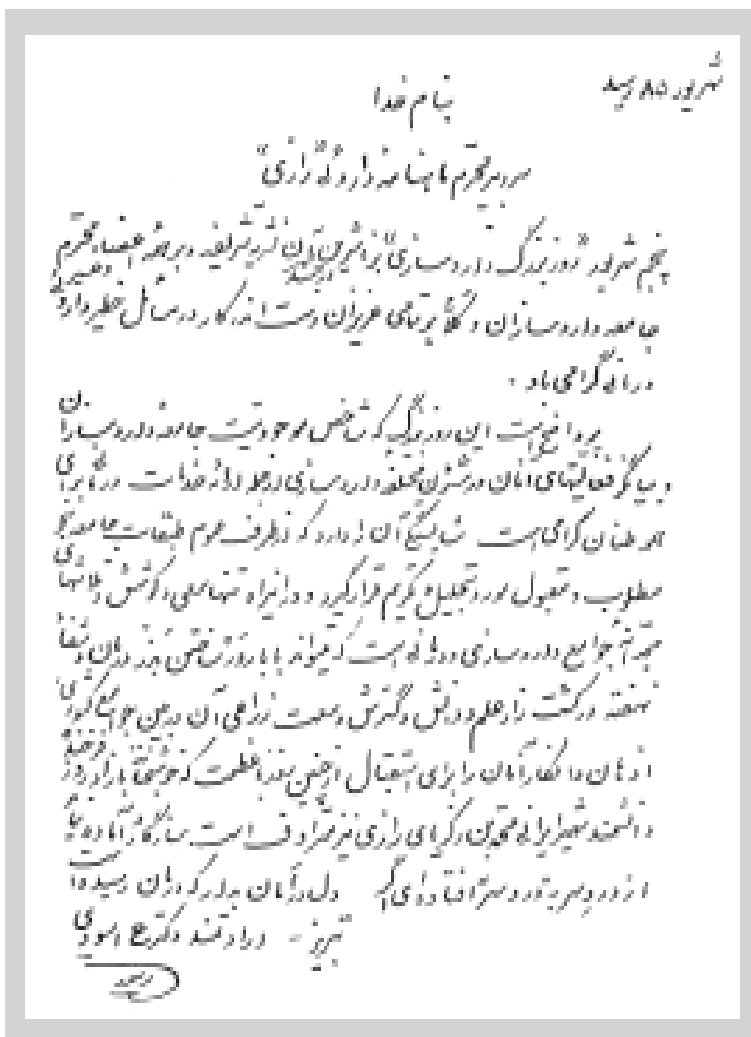 شهریور ۸۵ رسید
بنام خدا
سردبیر محترم ماهنامه داروئی "رازی"
پنجم شهریور "روز بزرگ داروسازی" بر ناشرین آن نشریه شریفه و بر همه اعضاء محترم
جامعه داروسازان و کلاً بر تمامی عزیزان دست اندر کار در مسائل خطیر دارو
درمانی گرامی باد.
پر واضح است این روز بزرگ که شاخص موجودیت جامعه داروسازان
و بیانگر فعالیتهای آنان در شئون مختلفه داروسازی و خدمات برای
هموطنان گرامی است شایستگی آن را دارد که از طرف عموم طبقات جامعه
مطلوب و مقبول مورد تجلیل و تکریم قرار گیرد و در این راه تنها سعی و کوشش و تلاشهای
جوامع داروسازی و درمانی است که میتواند با بارور ساختن بذر درمان و شفا
نهفته در کشت زار علم و دانش و گسترش وسعت زراعی آن در بین جوامع کشوری
اذهان و افکار آنان را برای استقبال از چنین روز با عظمت که خوشبختانه با زادروز
دانشمند شهیر ایرانی محمد بن زکریای رازی نیز مترادف است سازگار و آماده
از درد سر به درد سر افتاده ای اگر دل درآمان بدار که درمان رسیده است
تبریز - دکتر ع